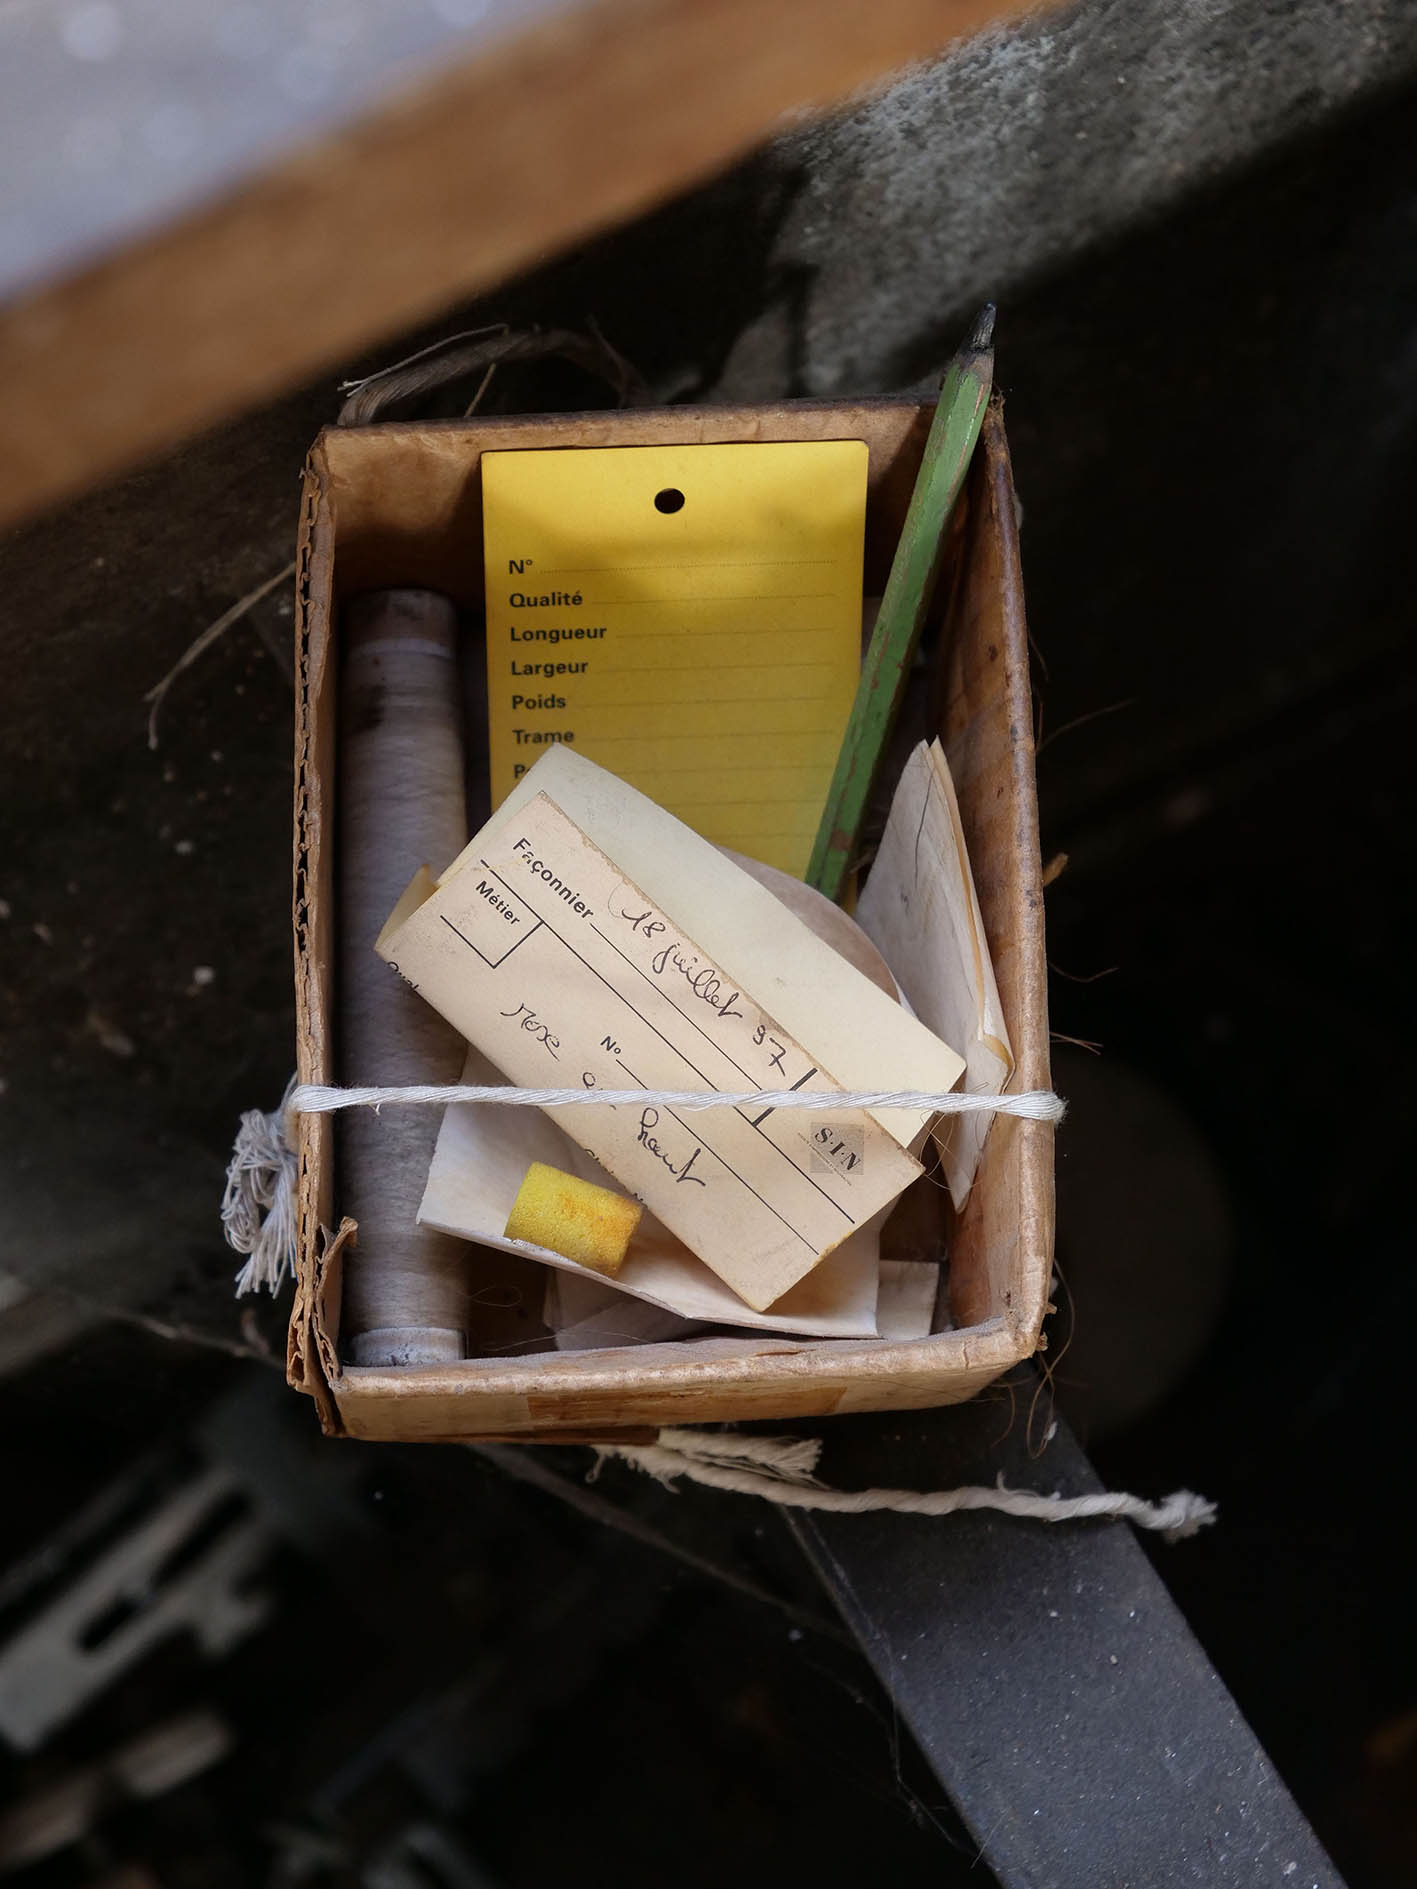 N°
Qualité
Longueur
Largeur
Poids
Trame
Façonnier 18 juillet 97
Métier
rose
N°
haut
S·I·N